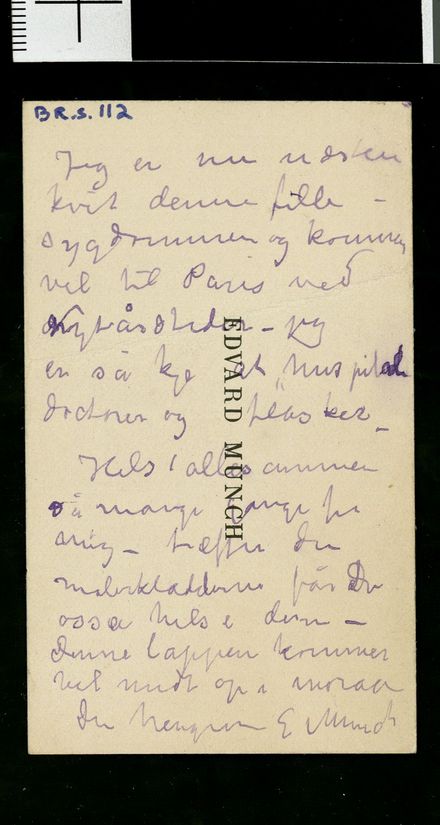 BR.S. 112
Jeg er nu næsten
kvit denne fille –
sygdommen og kommer
vel til Paris ved
nytårstider – jeg
er så kje at hospital
doctorer og flasker –
Hils allesammen
så mange gange fra
mig – træffer du
malerkladderne får du
også hilse dem –
Denne lappen kommer
vel midt op i moroa
Din hengivne E Munch
EDVARD MUNCH